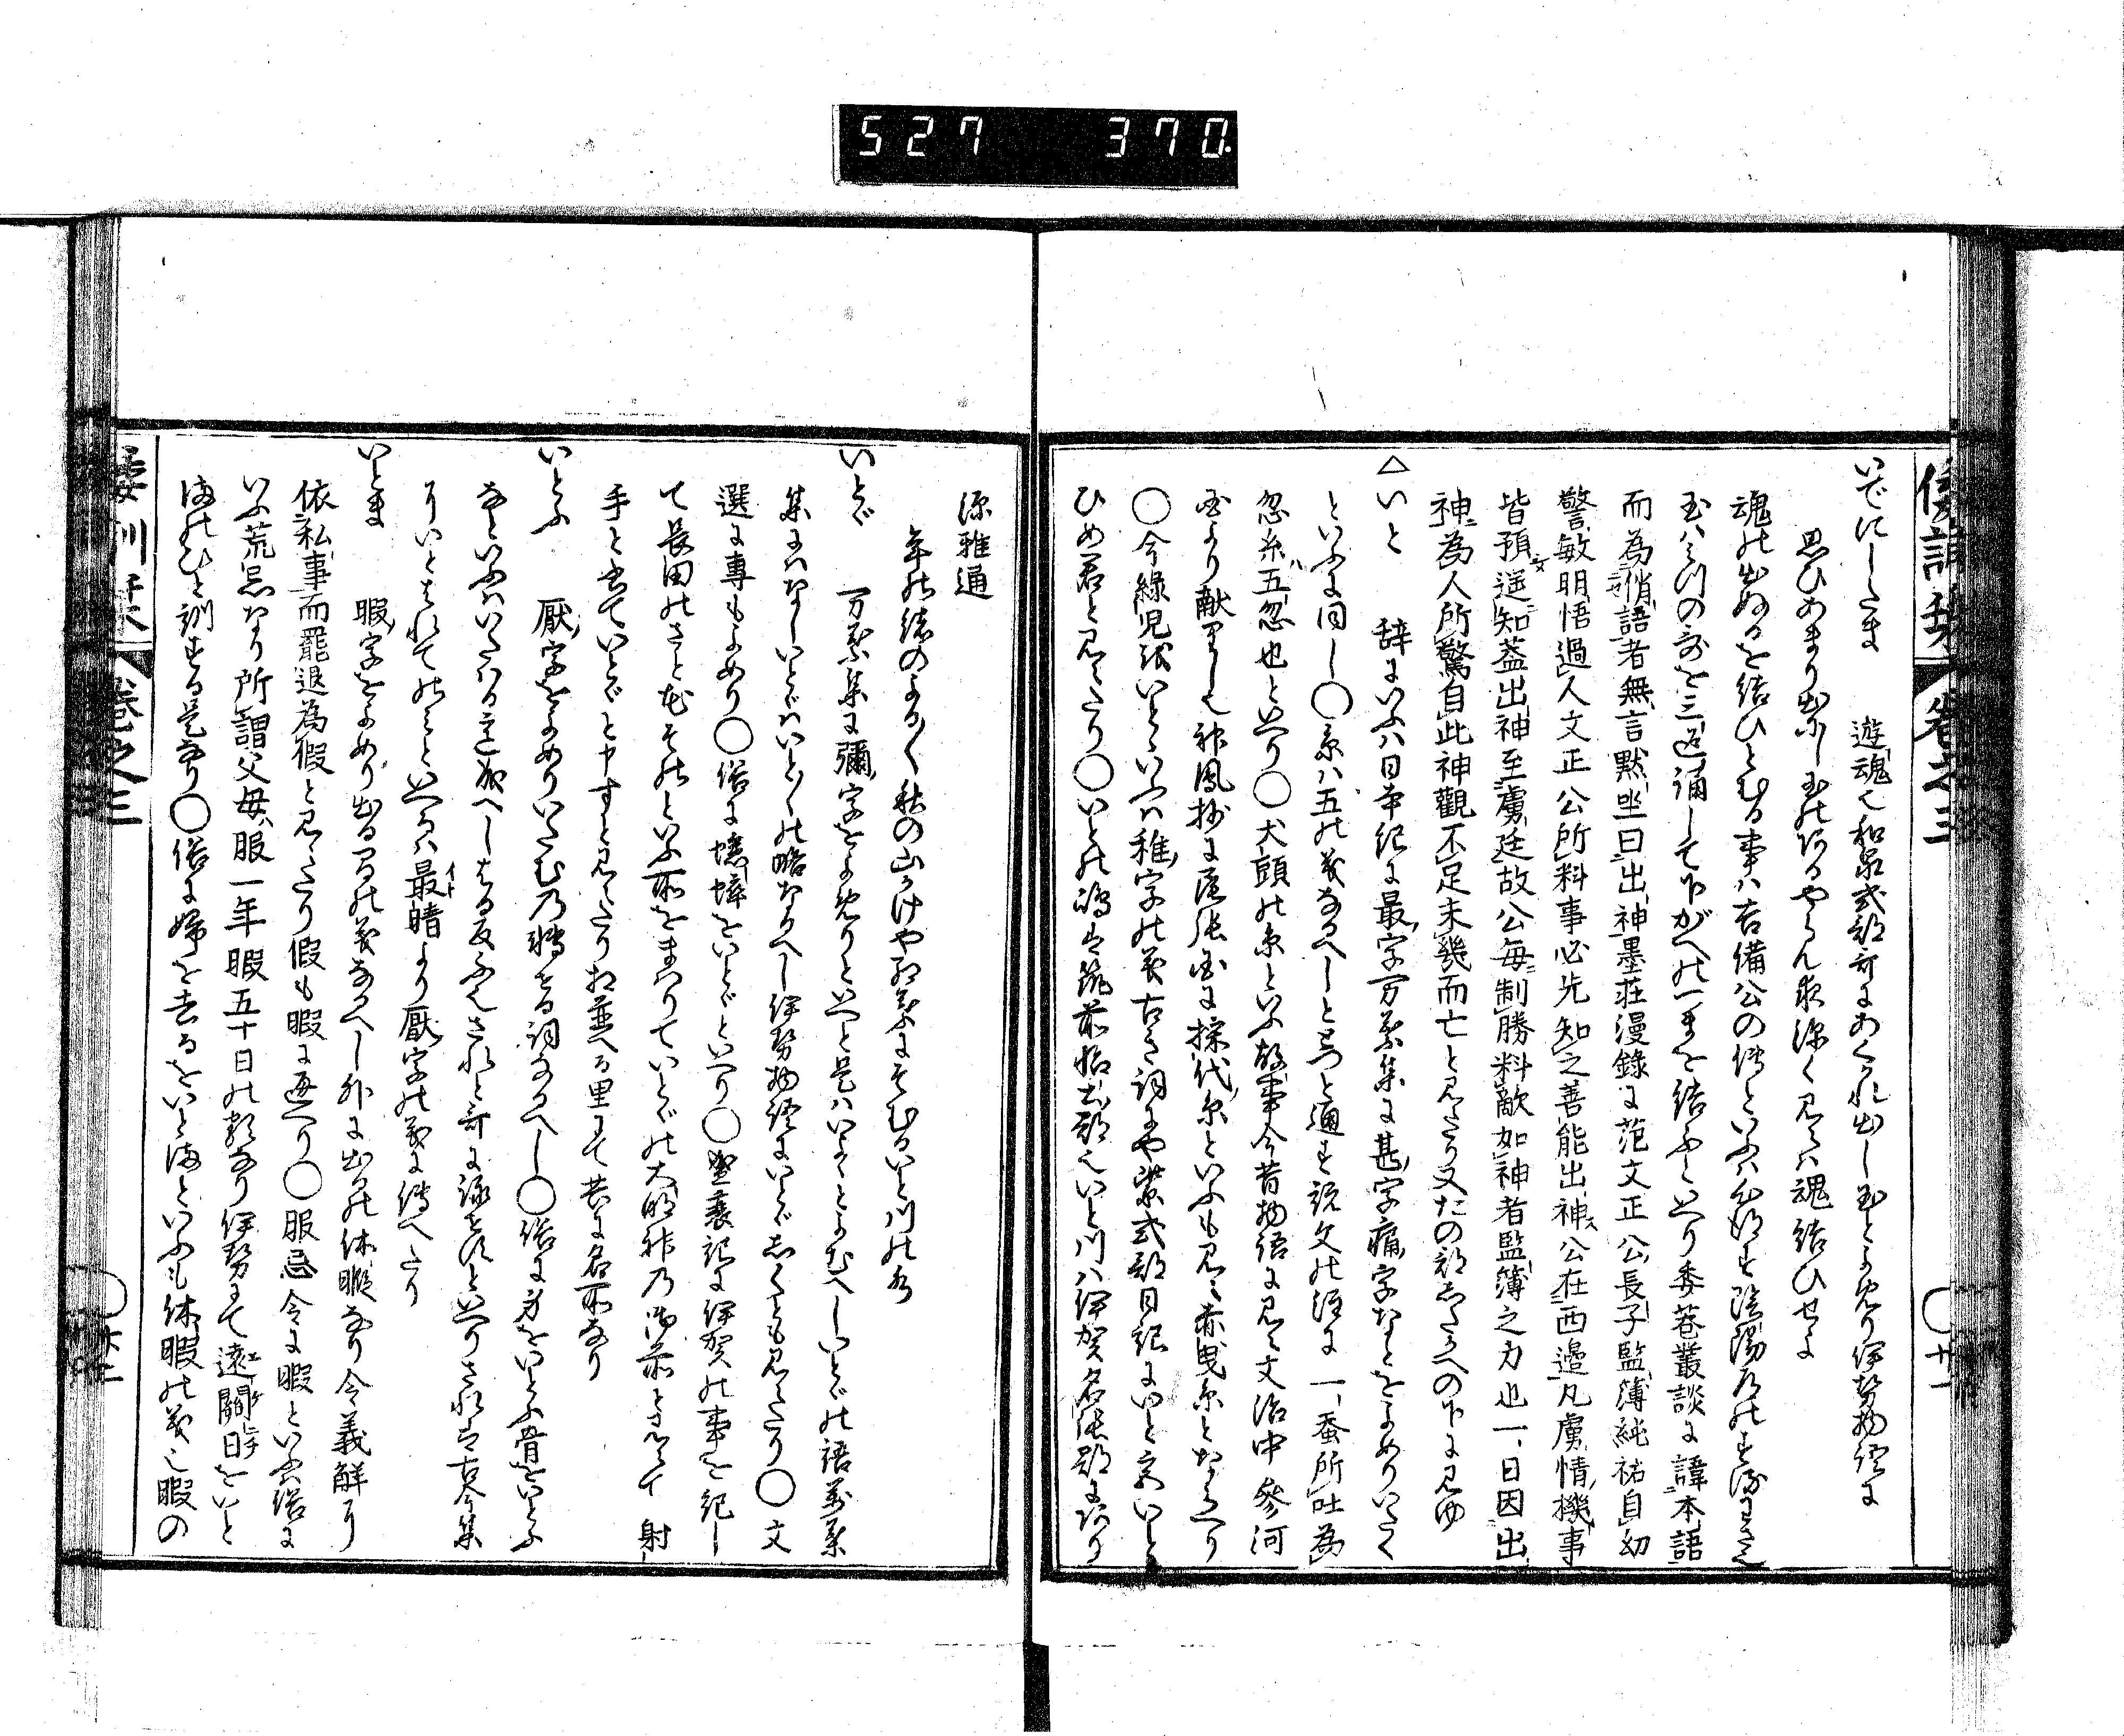 527 370
倭訓栞 巻之三 ○廿一
いでにしたま 遊魂也和泉式部哥にあくかれ出し玉とよめり伊勢物語に
思ひあまり出にし玉のあるやらん夜深く見えは魂結ひせよ
魂の出ぬるを結ひとむる事は吉備公の伝といふは
玉はみつの哥を三返誦して下がへのつまを結ふといへり委巷叢談に諱本語
而為俏語者無言黙坐曰出神墨荘漫録に范文正公長子監簿純祐自幼
警敏明悟過人文正公所料事必先知之善能出神公在西邊凡虜情機事
皆預遥知蓋出神至虜廷故公毎制勝料敵如神者監簿之力也一日因出
神為人所驚自此神観不足未幾而亡と見えたり又たの部したかへの下に見ゆ
△いと 辞にいふは日本紀に最字万葉集に甚字痛字なとをよめりいたく
といふに同し○糸は五の義なるへしとつと通す説文の注に一蚕所吐為
忽糸五忽也といへり○犬頭の糸といふ故事今昔物語に見え文治中參河
国より献りし也神鳳抄に尾張国に採代糸といふも見え赤曳糸とならへり
○今緑児をいとゝいふは稚字の義古き詞にや紫式部日記にいと宮いと
ひめ君と見えたり○いとの嶋は筑前怡土郡也いと川は伊賀名張郡にあり
源雅通
年の緒のよる〳〵秋の山かけや紅葉にそむるいと川の水
いとゞ 万葉集に彌字をよめりといへと是はいよゝとよむへしいとゞの語万葉
集にはなしいとゞはいと〳〵の略なるへし伊勢物語にいとゞしくとも見えたり○文
選に専もよめり○俗に蟋蟀をいとゞといへり○盛衰記に伊賀の事を記し
て長田のさと花そのといふ所をまはりていとゞの大明神乃御前と見えて射
手と書ていとゞと申すと見えたり相並へる里にて共に名所なり
いとふ 厭字をよめりいたむ乃轉せる詞なるへし○俗に身をいとふ骨をいとふ
なといふはいたはる意成へしはる反ふ也されと哥に詠せすといへりされは古今集
りいとはれてのみといへるは最晴より厭字の義に傳へたり
いとま 暇字をよめり出る間の義なるへし外に出るの休暇なり令義解に
依私事而罷退為假と見えたり假も暇に通へり○服忌令に暇といふは俗に
いふ荒忌なり所謂父母服一年暇五十日の類なり伊勢にて遠閊日をいと
まのひと訓する是なり○俗に婦を去るをいとまといふも休暇の義也暇の
倭訓栞 巻之三 ○廿二